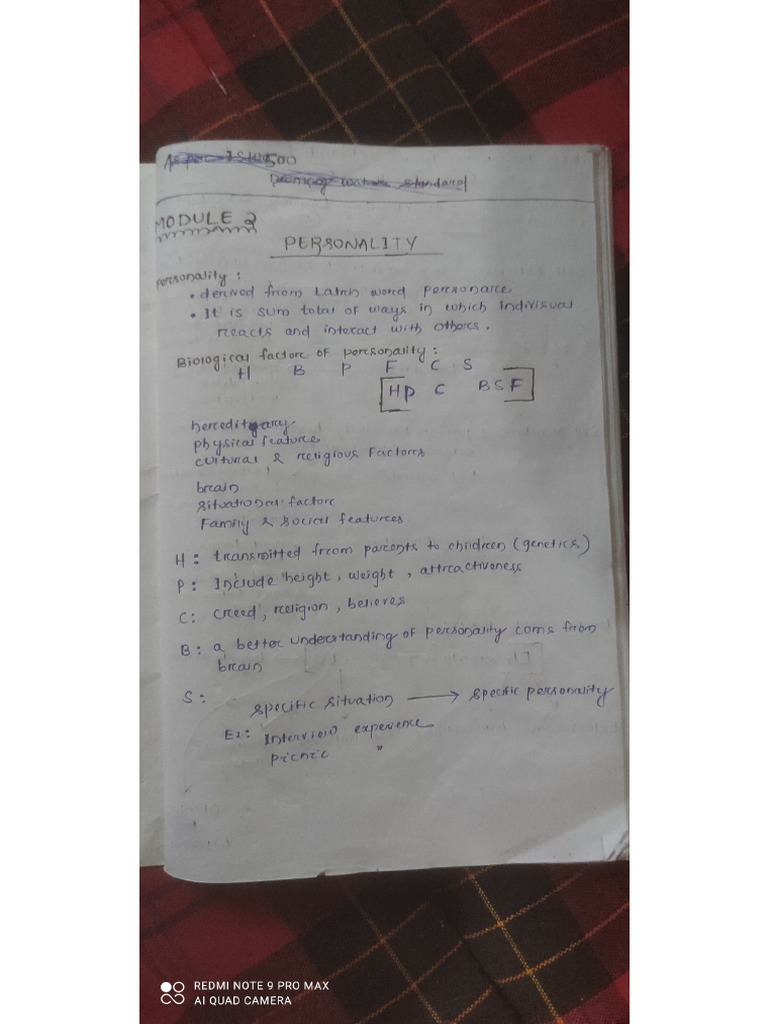 500
MODULE 2
PERSONALITY
Personality :
• derived from Latin word personare
• It is sum total of ways in which indivisual
reacts and interact with others.
Biological factors of personality :
H B P F C S
HP C BS F
hereditary
physical feature
cultural & religious Factores
brain
situational factor
Family & social features
H : transmitted from parents to children (genetics)
P : Include height, weight, attractiveness
C : creed, religion, believes
B : a better understanding of personality coms from
brain
S : specific situation → specific personality
Ex : Interview experience
picnic "
REDMI NOTE 9 PRO MAX
AI QUAD CAMERA